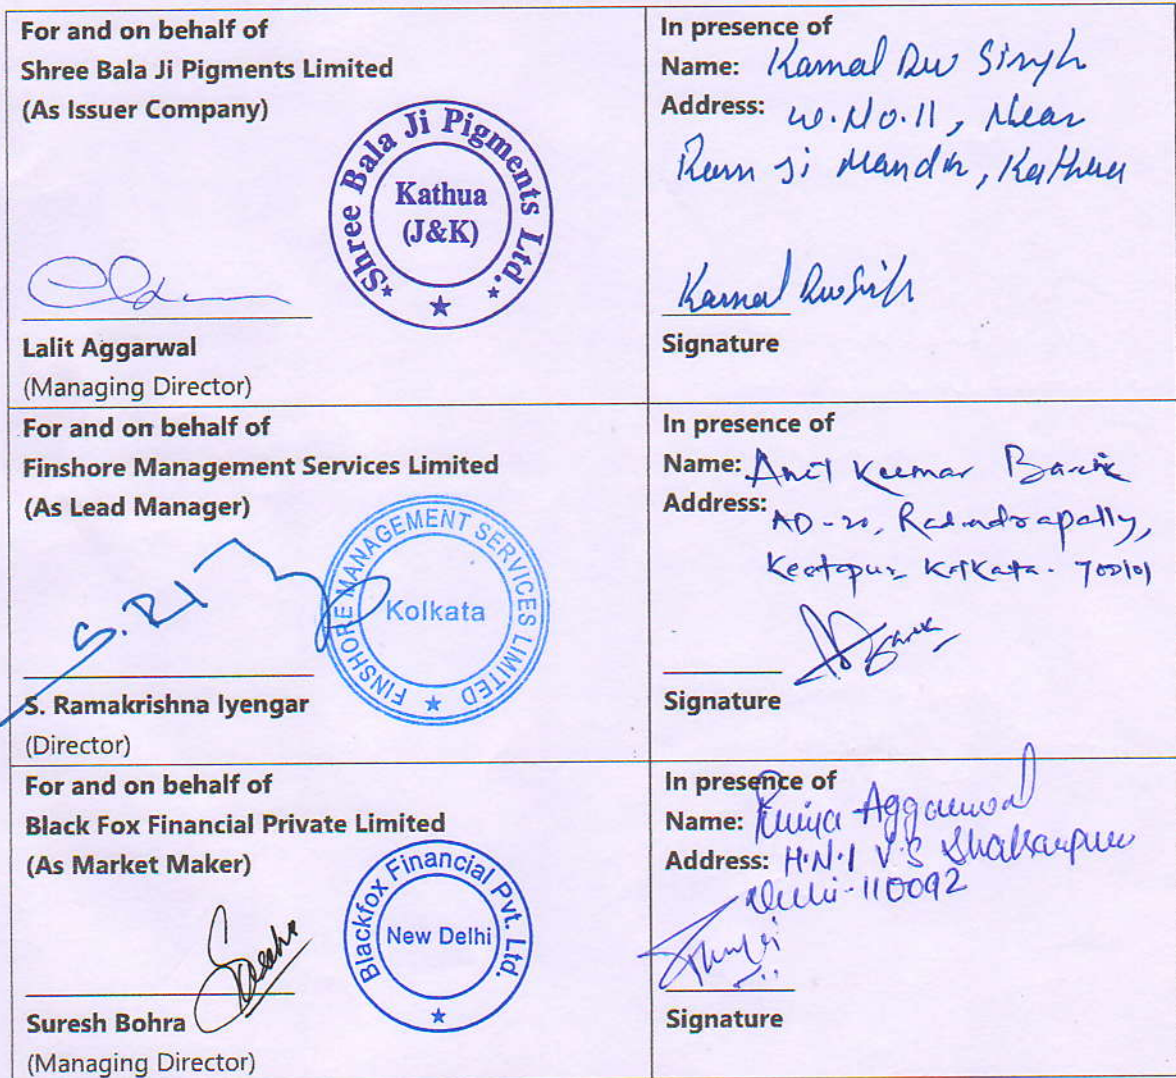 For and on behalf of
Shree Bala Ji Pigments Limited
(As Issuer Company)
Shree Bala Ji Pigments Ltd.
Kathua
(J&K)
Lalit Aggarwal
(Managing Director)
In presence of
Name: Kamal Dev Singh
Address: W.No.11, Near
Ram Ji Mandir, Kathua
Kamal Dev Singh
Signature
For and on behalf of
Finshore Management Services Limited
(As Lead Manager)
FINSHORE MANAGEMENT SERVICES LIMITED
Kolkata
S. Ramakrishna Iyengar
(Director)
In presence of
Name: Anil Kumar Barik
Address: AD-20, Rabindrapally,
Kestopur Kolkata. 700101
Signature
For and on behalf of
Black Fox Financial Private Limited
(As Market Maker)
Blackfox Financial Pvt. Ltd.
New Delhi
Suresh Bohra
(Managing Director)
In presence of
Name: Aggarwal
Address: H.N.1 V.S Shakarpur
Delhi-110092
Signature